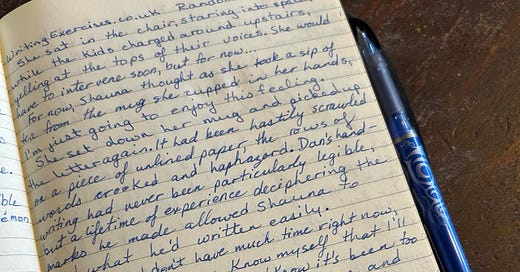 WritingExercises.co.uk Random
She sat in the chair, staring into space,
while the kids charged around upstairs,
yelling at the tops of their voices. She would
have to intervene soon, but for now...
For now, Shauna thought as she took a sip of
tea from the mug she cupped in her hands,
I'm just going to enjoy this feeling.
She set down her mug and picked up
the letter again. It had been hastily scrawled
on a piece of unlined paper, the rows of
words crooked and haphazard. Dan's hand-
writing had never been particularly legible,
but a lifetime of experience deciphering the
marks he made allowed Shauna to
what he'd written easily.
don't have much time right now,
know myself that I'll
know it's been too
and
ble
émon